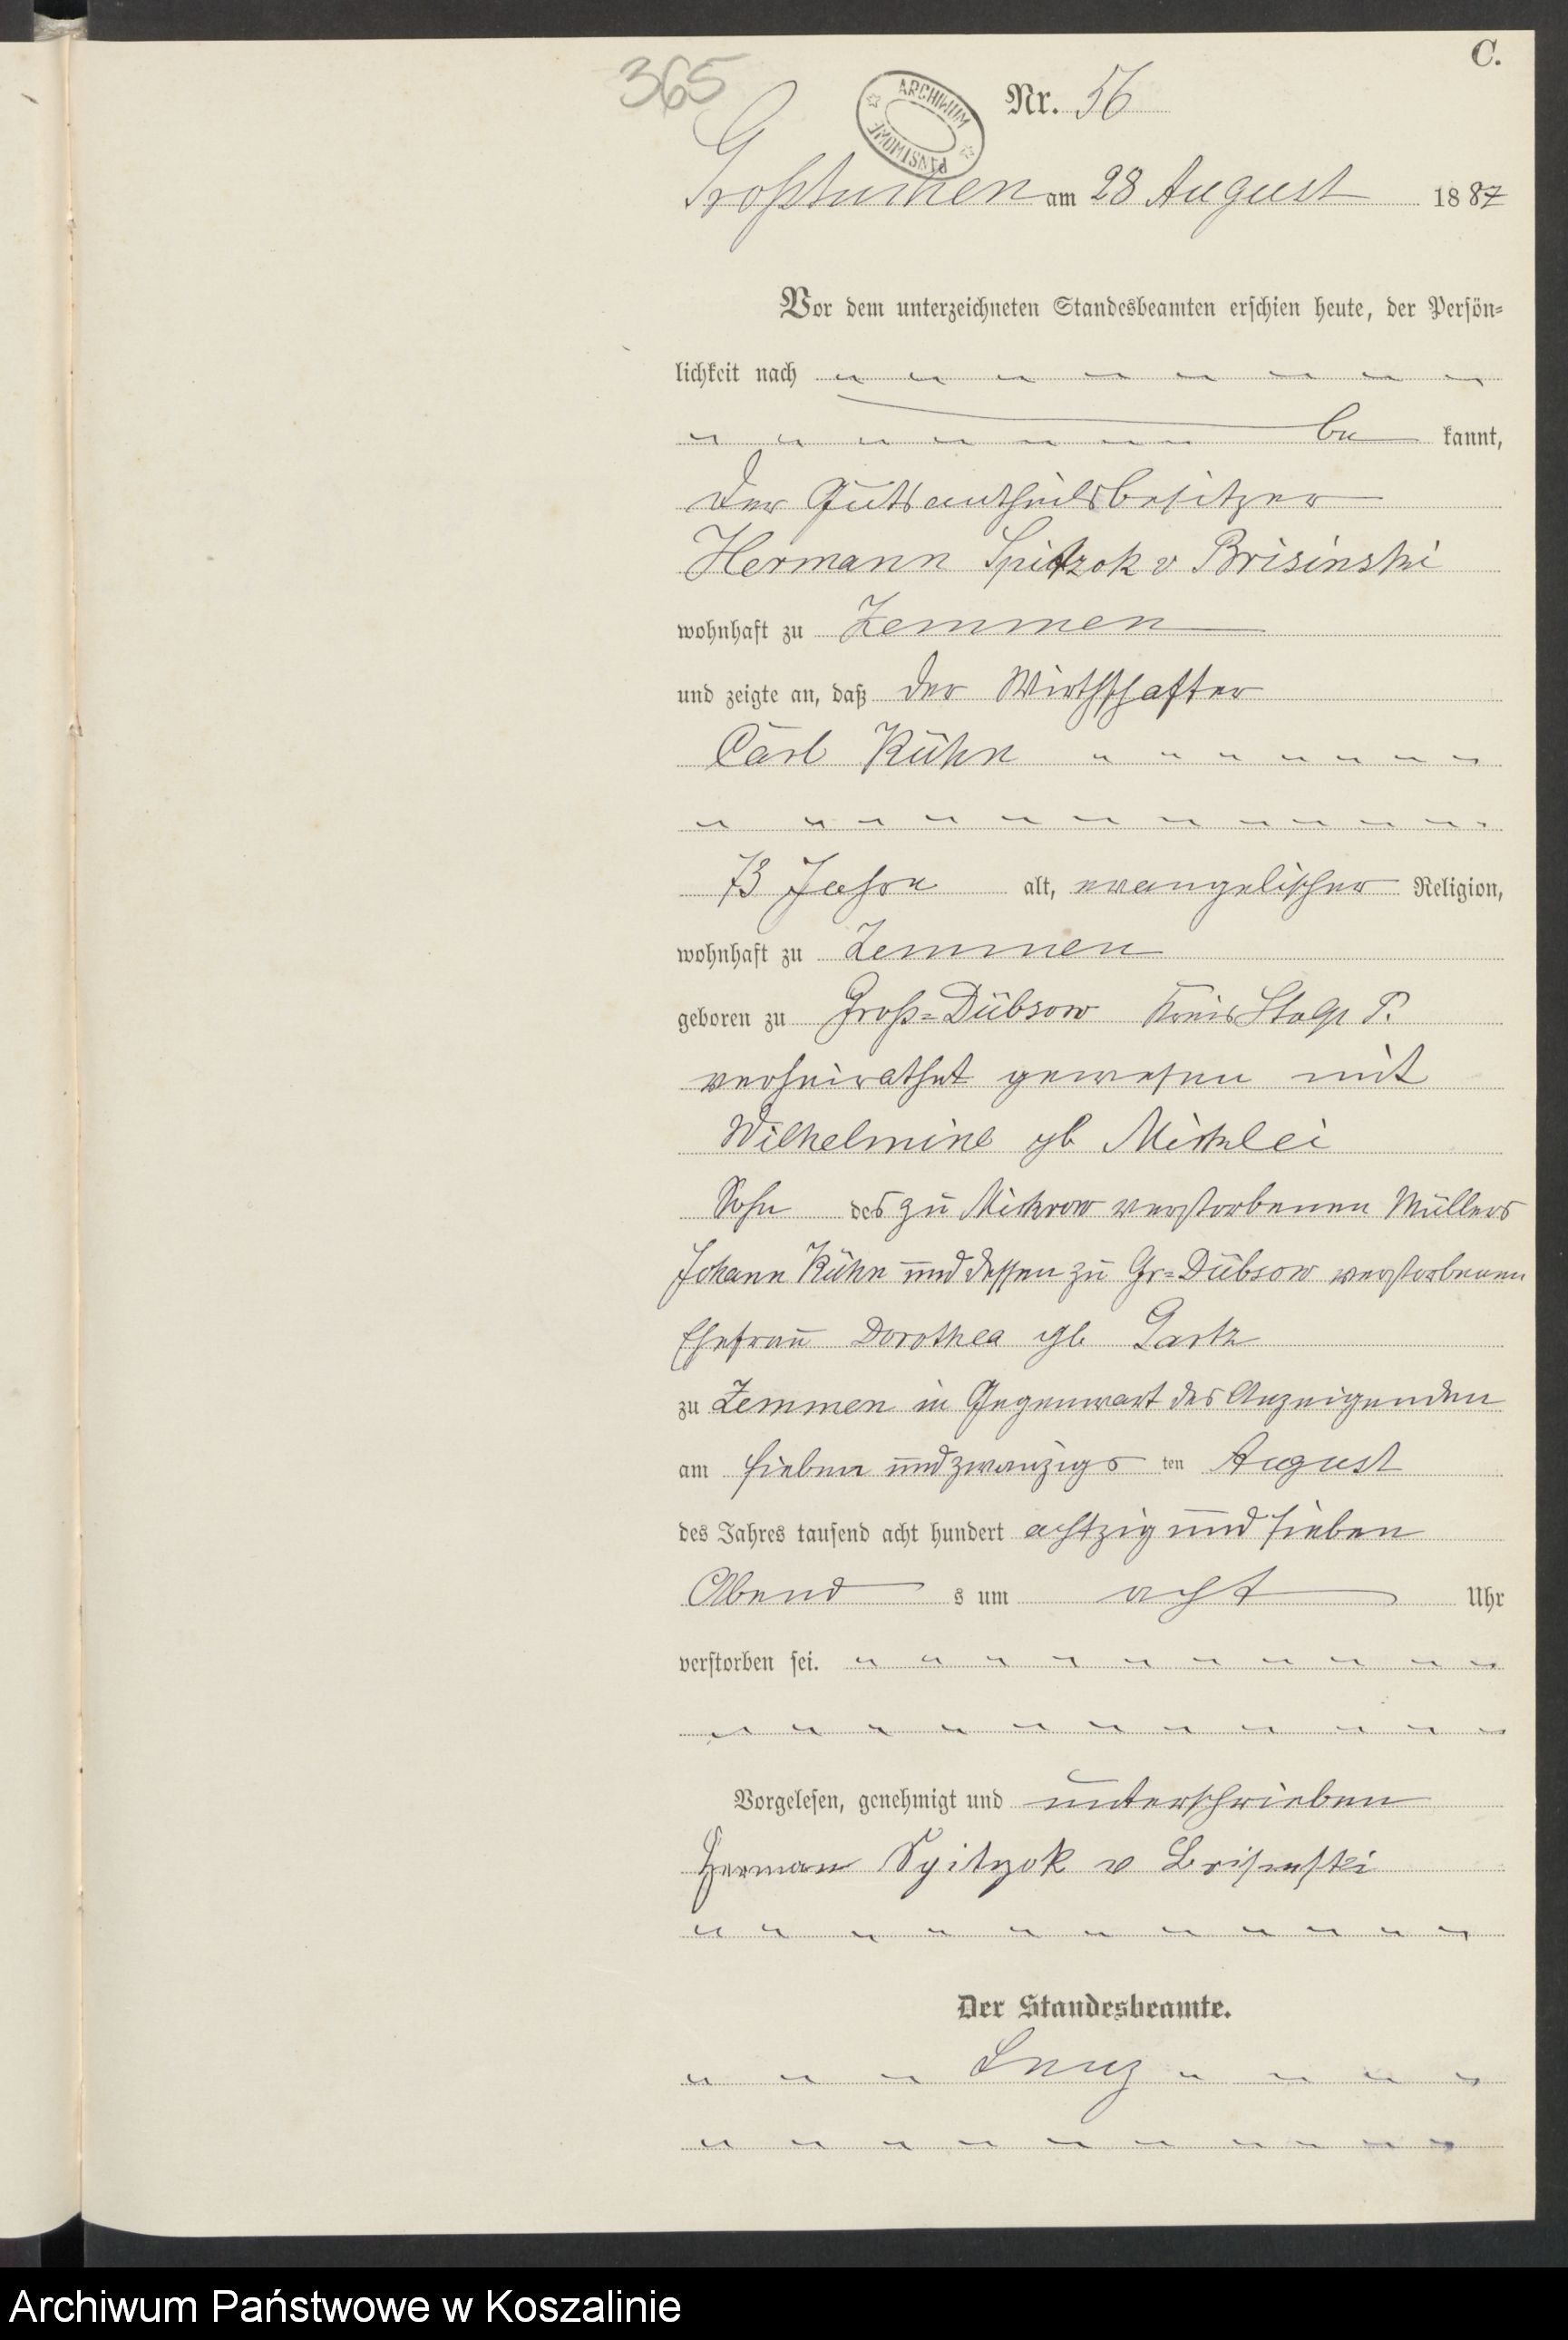 C.
365
ARCHIWUM PAŃSTWOWE
Nr. 56
Großtuchen am 28 August 1887
Vor dem unterzeichneten Standesbeamten erschien heute, der Persön-
lichkeit nach
be kannt,
der Gutsantheilsbesitzer
Hermann Spitzok v Brisinski
wohnhaft zu Zemmen
und zeigte an, daß der Wirthschafter
Carl Kühn
73 Jahre alt, evangelischer Religion,
wohnhaft zu Zemmen
geboren zu Groß-Dübsow Kreis Stolp P.
verheirathet gewesen mit
Wilhelmine gb
Sohn des zu Mickrow verstorbenen Müllers
Johann Kühn und dessen zu Gr-Dübsow verstorbenen
Ehefrau Dorothea gb
zu Zemmen in Gegenwart des Anzeigenden
am sieben und zwanzigs ten August
des Jahres tausend acht hundert achtzig und sieben
Abend s um acht Uhr
verstorben sei.
Vorgelesen, genehmigt und unterschrieben
Herman Spitzok v Brisinski
Der Standesbeamte.
Lenz
Archiwum Państwowe w Koszalinie